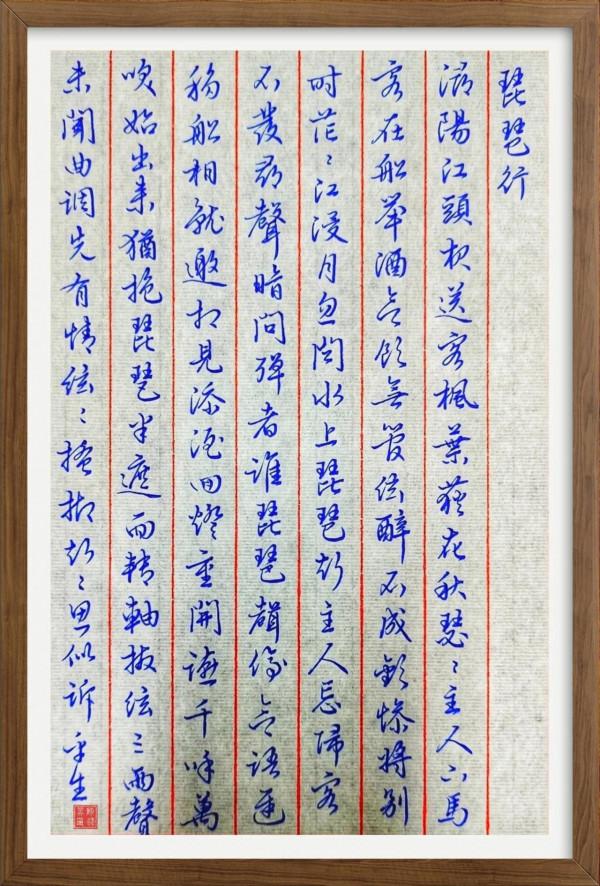 琵琶行
潯陽江頭夜送客楓葉荻花秋瑟〻主人下馬
客在船举酒欲飲無管弦醉不成歡慘將别
时茫〻江浸月忽闻水上琵琶声主人忘歸客
不發尋聲暗问彈者谁琵琶聲停欲语遲
移船相就邀相見添酒回燈重開讌千呼萬
唤始出来猶抱琵琶半遮面轉軸撥弦三兩聲
未闻曲调先有情弦〻掩抑声〻思似訴平生